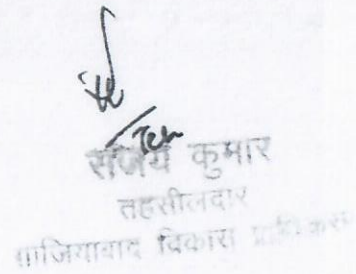 संजय कुमार
तहसीलदार
गाजियाबाद विकास प्राधिकरण